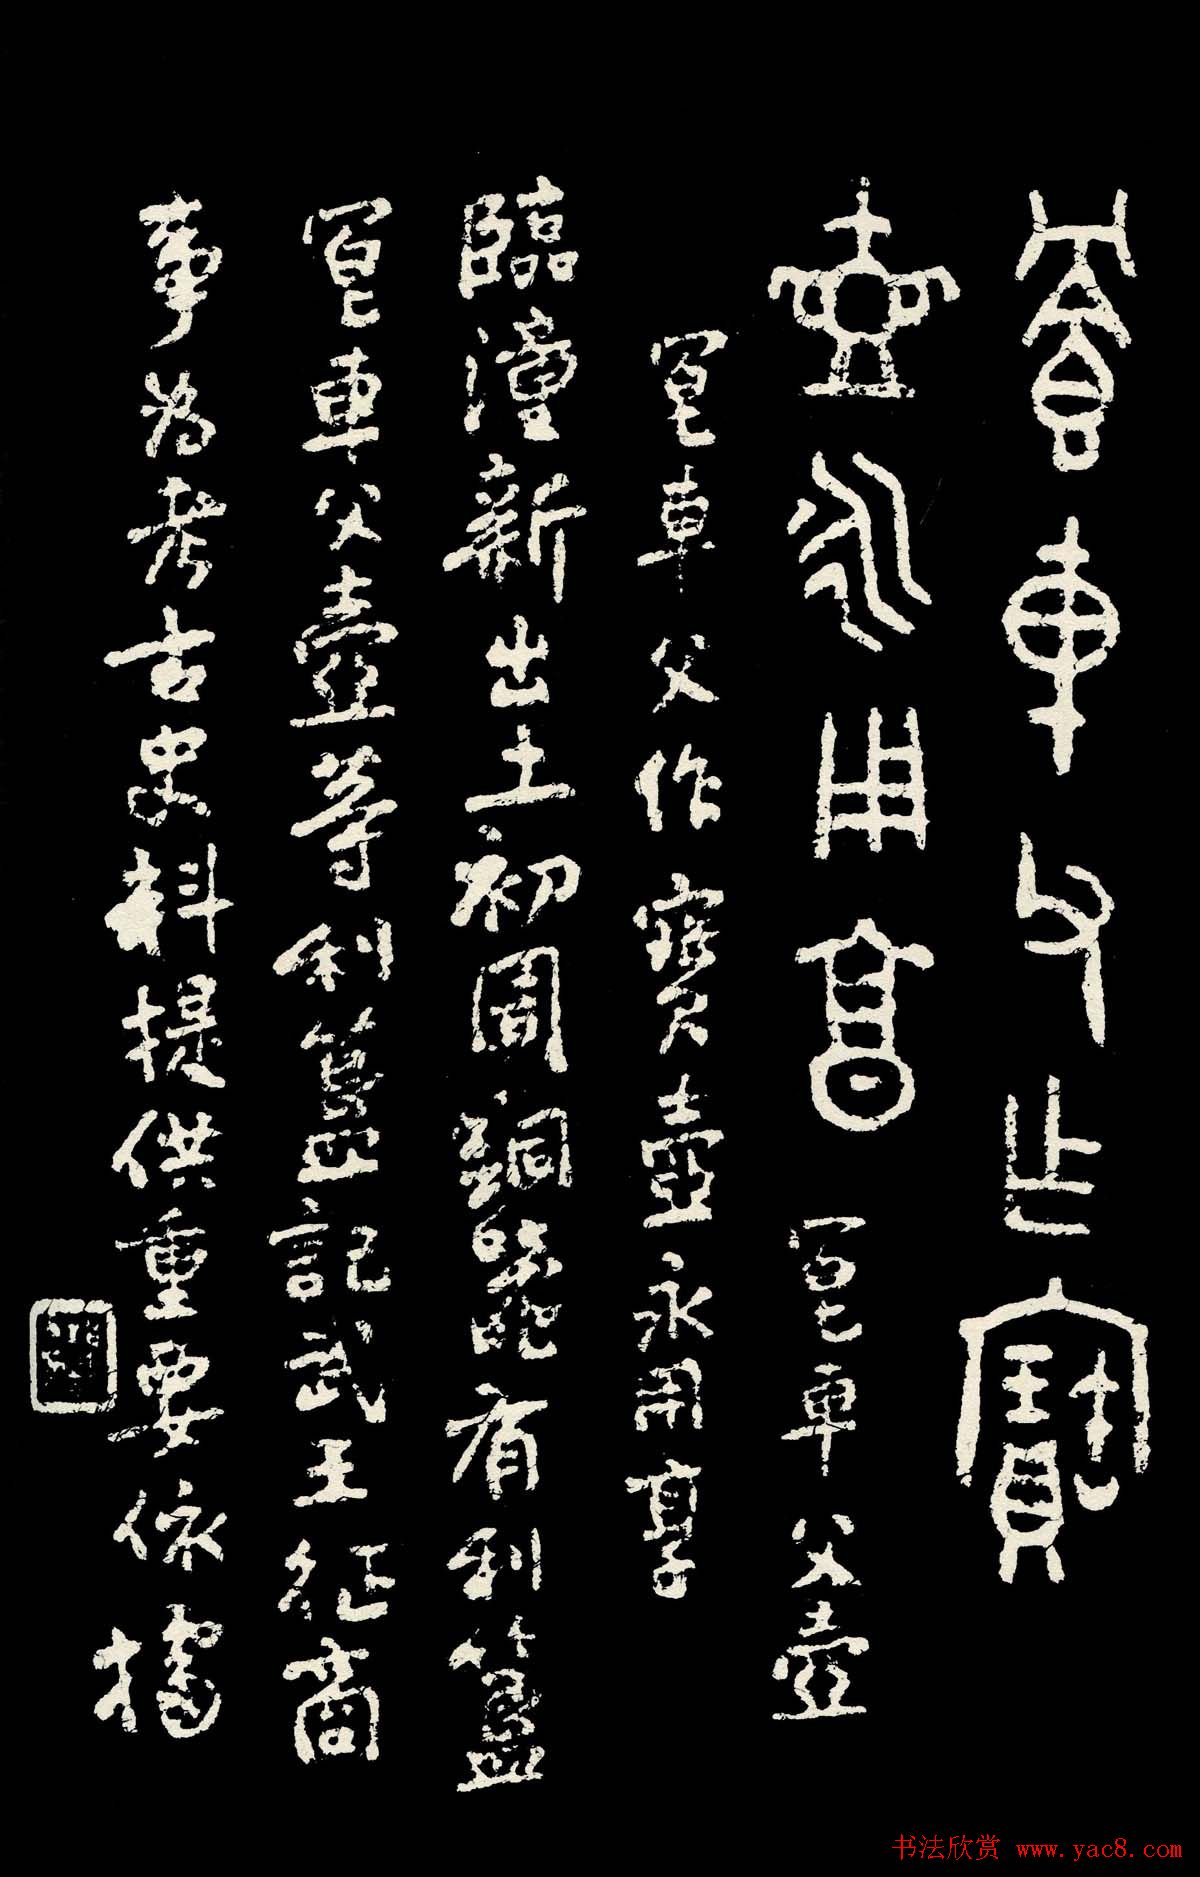 車父作寶
壺永用享 車父壺
車父作寶壺永用享
臨潼新出土初周銅器有利簋
車父壺等利簋記武王征商
事為考古史料提供重要依據
书法欣赏 www.yac8.com